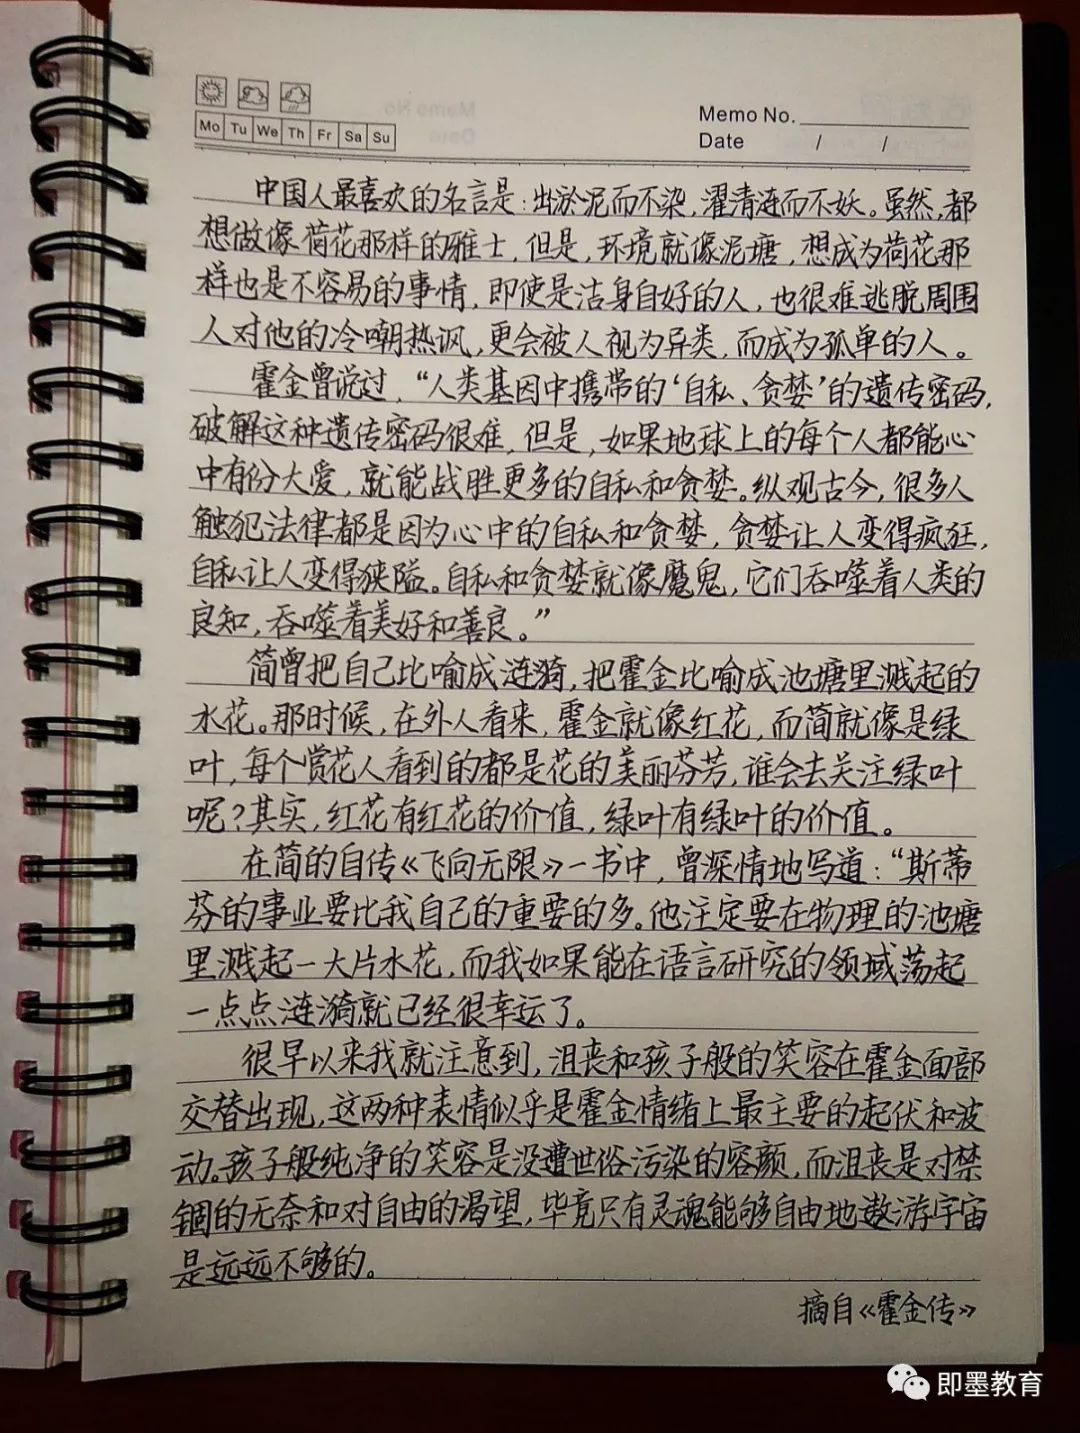 Mo Tu We Th Fr Sa Su
Memo No.
Date / /
中国人最喜欢的名言是：出淤泥而不染，濯清涟而不妖。虽然，都
想做像荷花那样的雅士，但是，环境就像泥塘，想成为荷花那
样也是不容易的事情，即使是洁身自好的人，也很难逃脱周围
人对他的冷嘲热讽，更会被人视为异类，而成为孤单的人。
霍金曾说过，“人类基因中携带的‘自私、贪婪’的遗传密码，
破解这种遗传密码很难，但是，如果地球上的每个人都能心
中有份大爱，就能战胜更多的自私和贪婪。纵观古今，很多人
触犯法律都是因为心中的自私和贪婪，贪婪让人变得疯狂，
自私让人变得狭隘。自私和贪婪就像魔鬼，它们吞噬着人类的
良知，吞噬着美好和善良。”
简曾把自己比喻成涟漪，把霍金比喻成池塘里溅起的
水花。那时候，在外人看来，霍金就像红花，而简就像是绿
叶，每个赏花人看到的都是花的美丽芬芳，谁会去关注绿叶
呢？其实，红花有红花的价值，绿叶有绿叶的价值。
在简的自传《飞向无限》一书中，曾深情地写道：“斯蒂
芬的事业要比我自己的重要的多。他注定要在物理的池塘
里溅起一大片水花，而我如果能在语言研究的领域荡起
一点点涟漪就已经很幸运了。
很早以来我就注意到，沮丧和孩子般的笑容在霍金面部
交替出现，这两种表情似乎是霍金情绪上最主要的起伏和波
动。孩子般纯净的笑容是没遭世俗污染的容颜，而沮丧是对禁
锢的无奈和对自由的渴望，毕竟只有灵魂能够自由地遨游宇宙
是远远不够的。
摘自《霍金传》
即墨教育